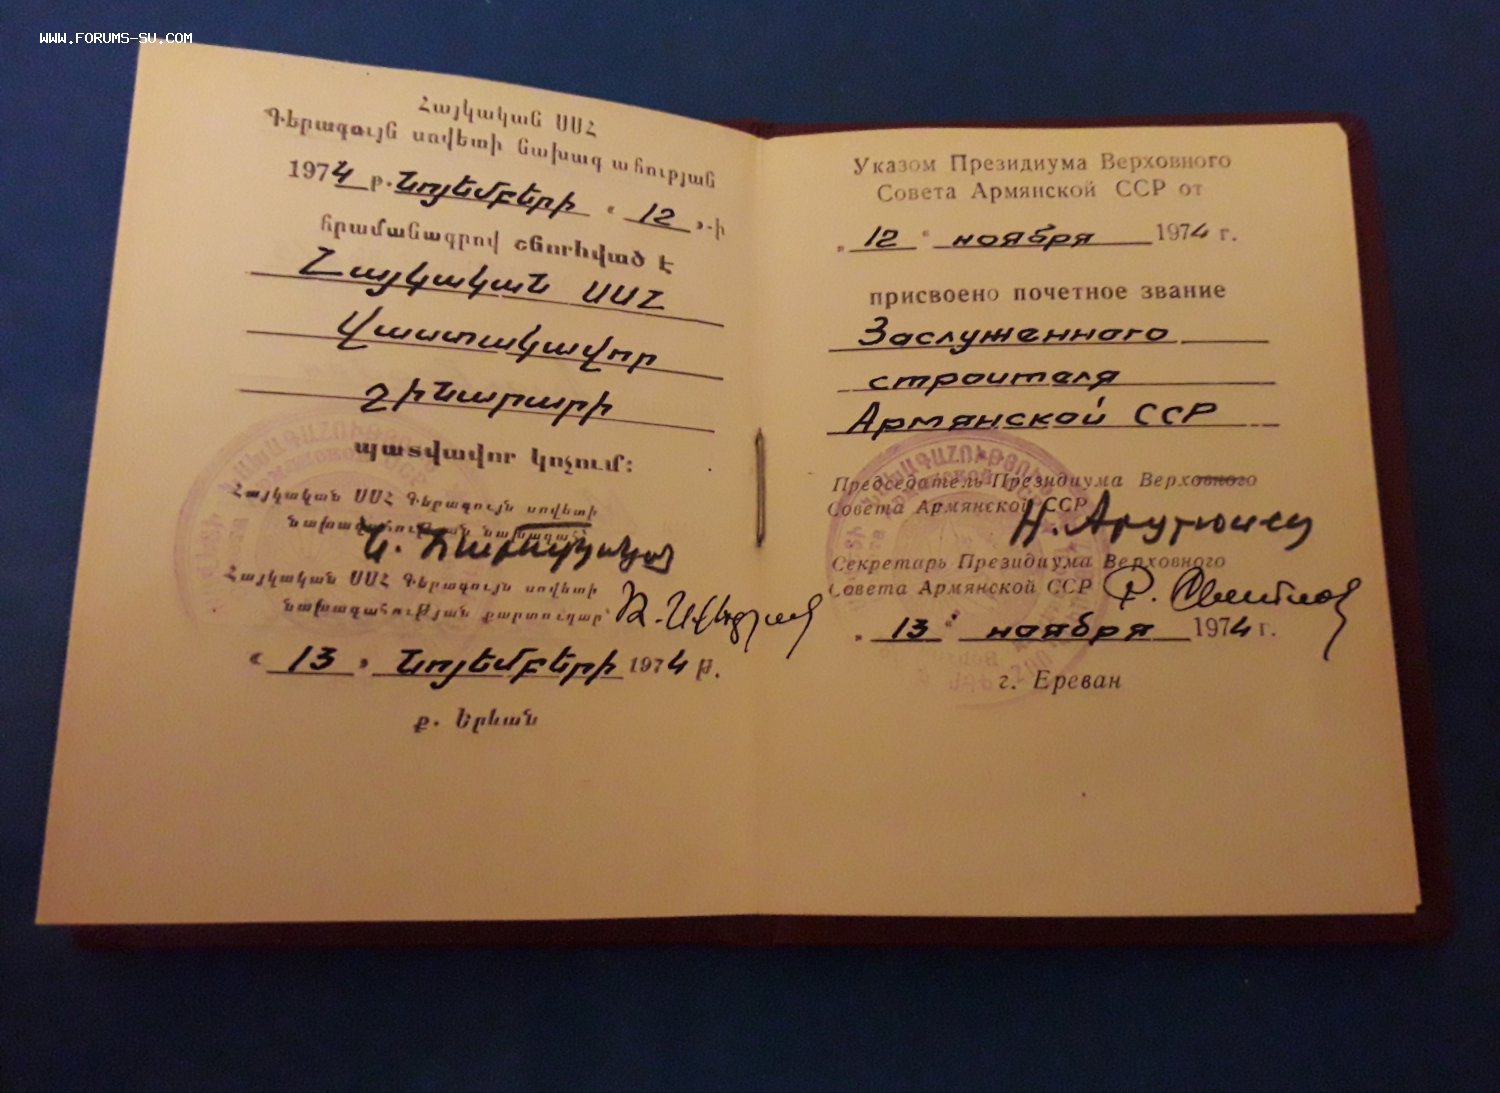 WWW.FORUMS-SU.COM
Հայկական ՍՍՀ
Գերագույն սովետի նախագահության
1974 թ. Նոյեմբերի « 12 »-ի
հրամանագրով շնորհված է
Հայկական ՍՍՀ
Վաստակավոր
շինարարի
պատվավոր կոչում։
Հայկական ՍՍՀ Գերագույն սովետի
նախագահության նախագահ՝
Հայկական ՍՍՀ Գերագույն սովետի
նախագահության քարտուղար՝
« 13 » Նոյեմբերի 1974 թ.
ք. Երևան
Указом Президиума Верховного
Совета Армянской ССР от
„ 12 “ ноября 1974 г.
присвоено почетное звание
Заслуженного
строителя
Армянской ССР
Председатель Президиума Верховного
Совета Армянской ССР
Н. Арутюнян
Секретарь Президиума Верховного
Совета Армянской ССР
„ 13 “ ноября 1974 г.
г. Ереван